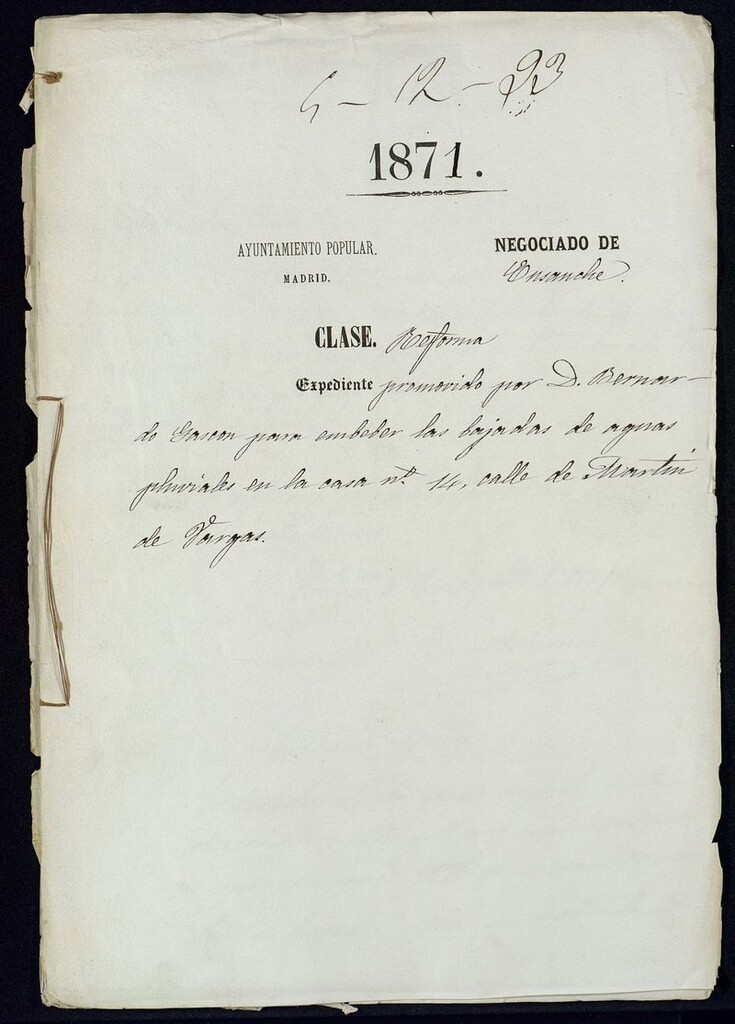 5 - 12 - 93
1871.
AYUNTAMIENTO POPULAR.
MADRID.
NEGOCIADO DE
Ensanche.
CLASE. Reforma
Expediente promovido por D. Bernar-
do Gascon para embeber las bajadas de aguas
pluviales en la casa nº 14, calle de Martin
de Vargas.